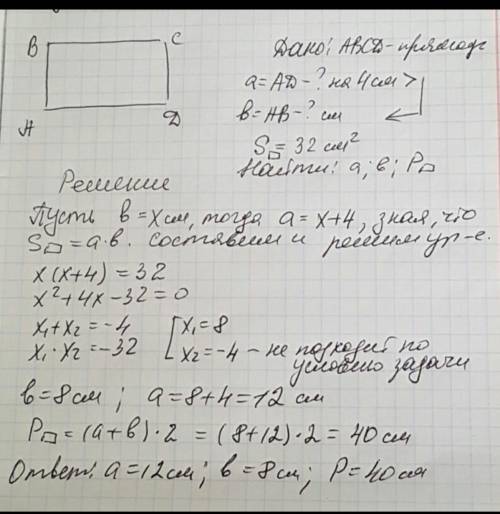 B C
Дано: ABCD - прямоуг
a = AD - ? на 4 см >
A Д
b = AB - ? см
S▭ = 32 см²
Найти: a; b; P▭
Решение
Пусть b = x см, тогда a = x+4, зная, что
S▭ = a·b. составим и решим ур-е.
x(x+4) = 32
x² + 4x - 32 = 0
x₁ + x₂ = -4 [x₁ = 8
x₁ · x₂ = -32 x₂ = -4 - не подходит по
условию задачи
b = 8 см ; a = 8+4 = 12 см
P▭ = (a+b)·2 = (8+12)·2 = 40 см
Ответ: a = 12 см; b = 8 см; P = 40 см